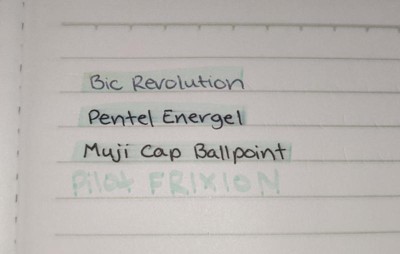 Bic Revolution
Pentel Energel
Muji Cap Ballpoint
Pilot FRIXION